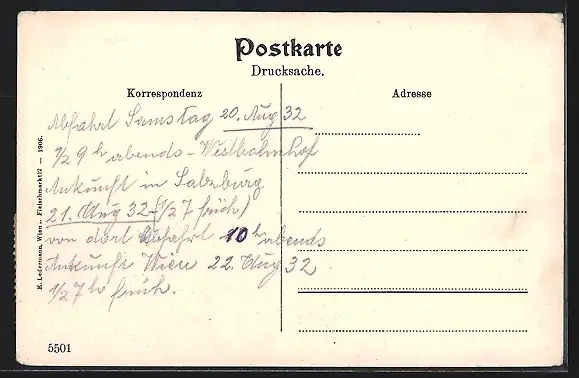 Postkarte
Drucksache.
Korrespondenz
Adresse
Abfahrt Samstag 20. Aug 32
1/2 9 h abends - Westbahnhof
Ankunft in Salzburg
21. Aug 32 (1/27 früh)
von dort Abfahrt 10 h abends
Ankunft Wien 22. Aug 32
1/2 7 h früh.
K. Ledermann, Wien I., Fleischmarkt 12 — 1906.
5501